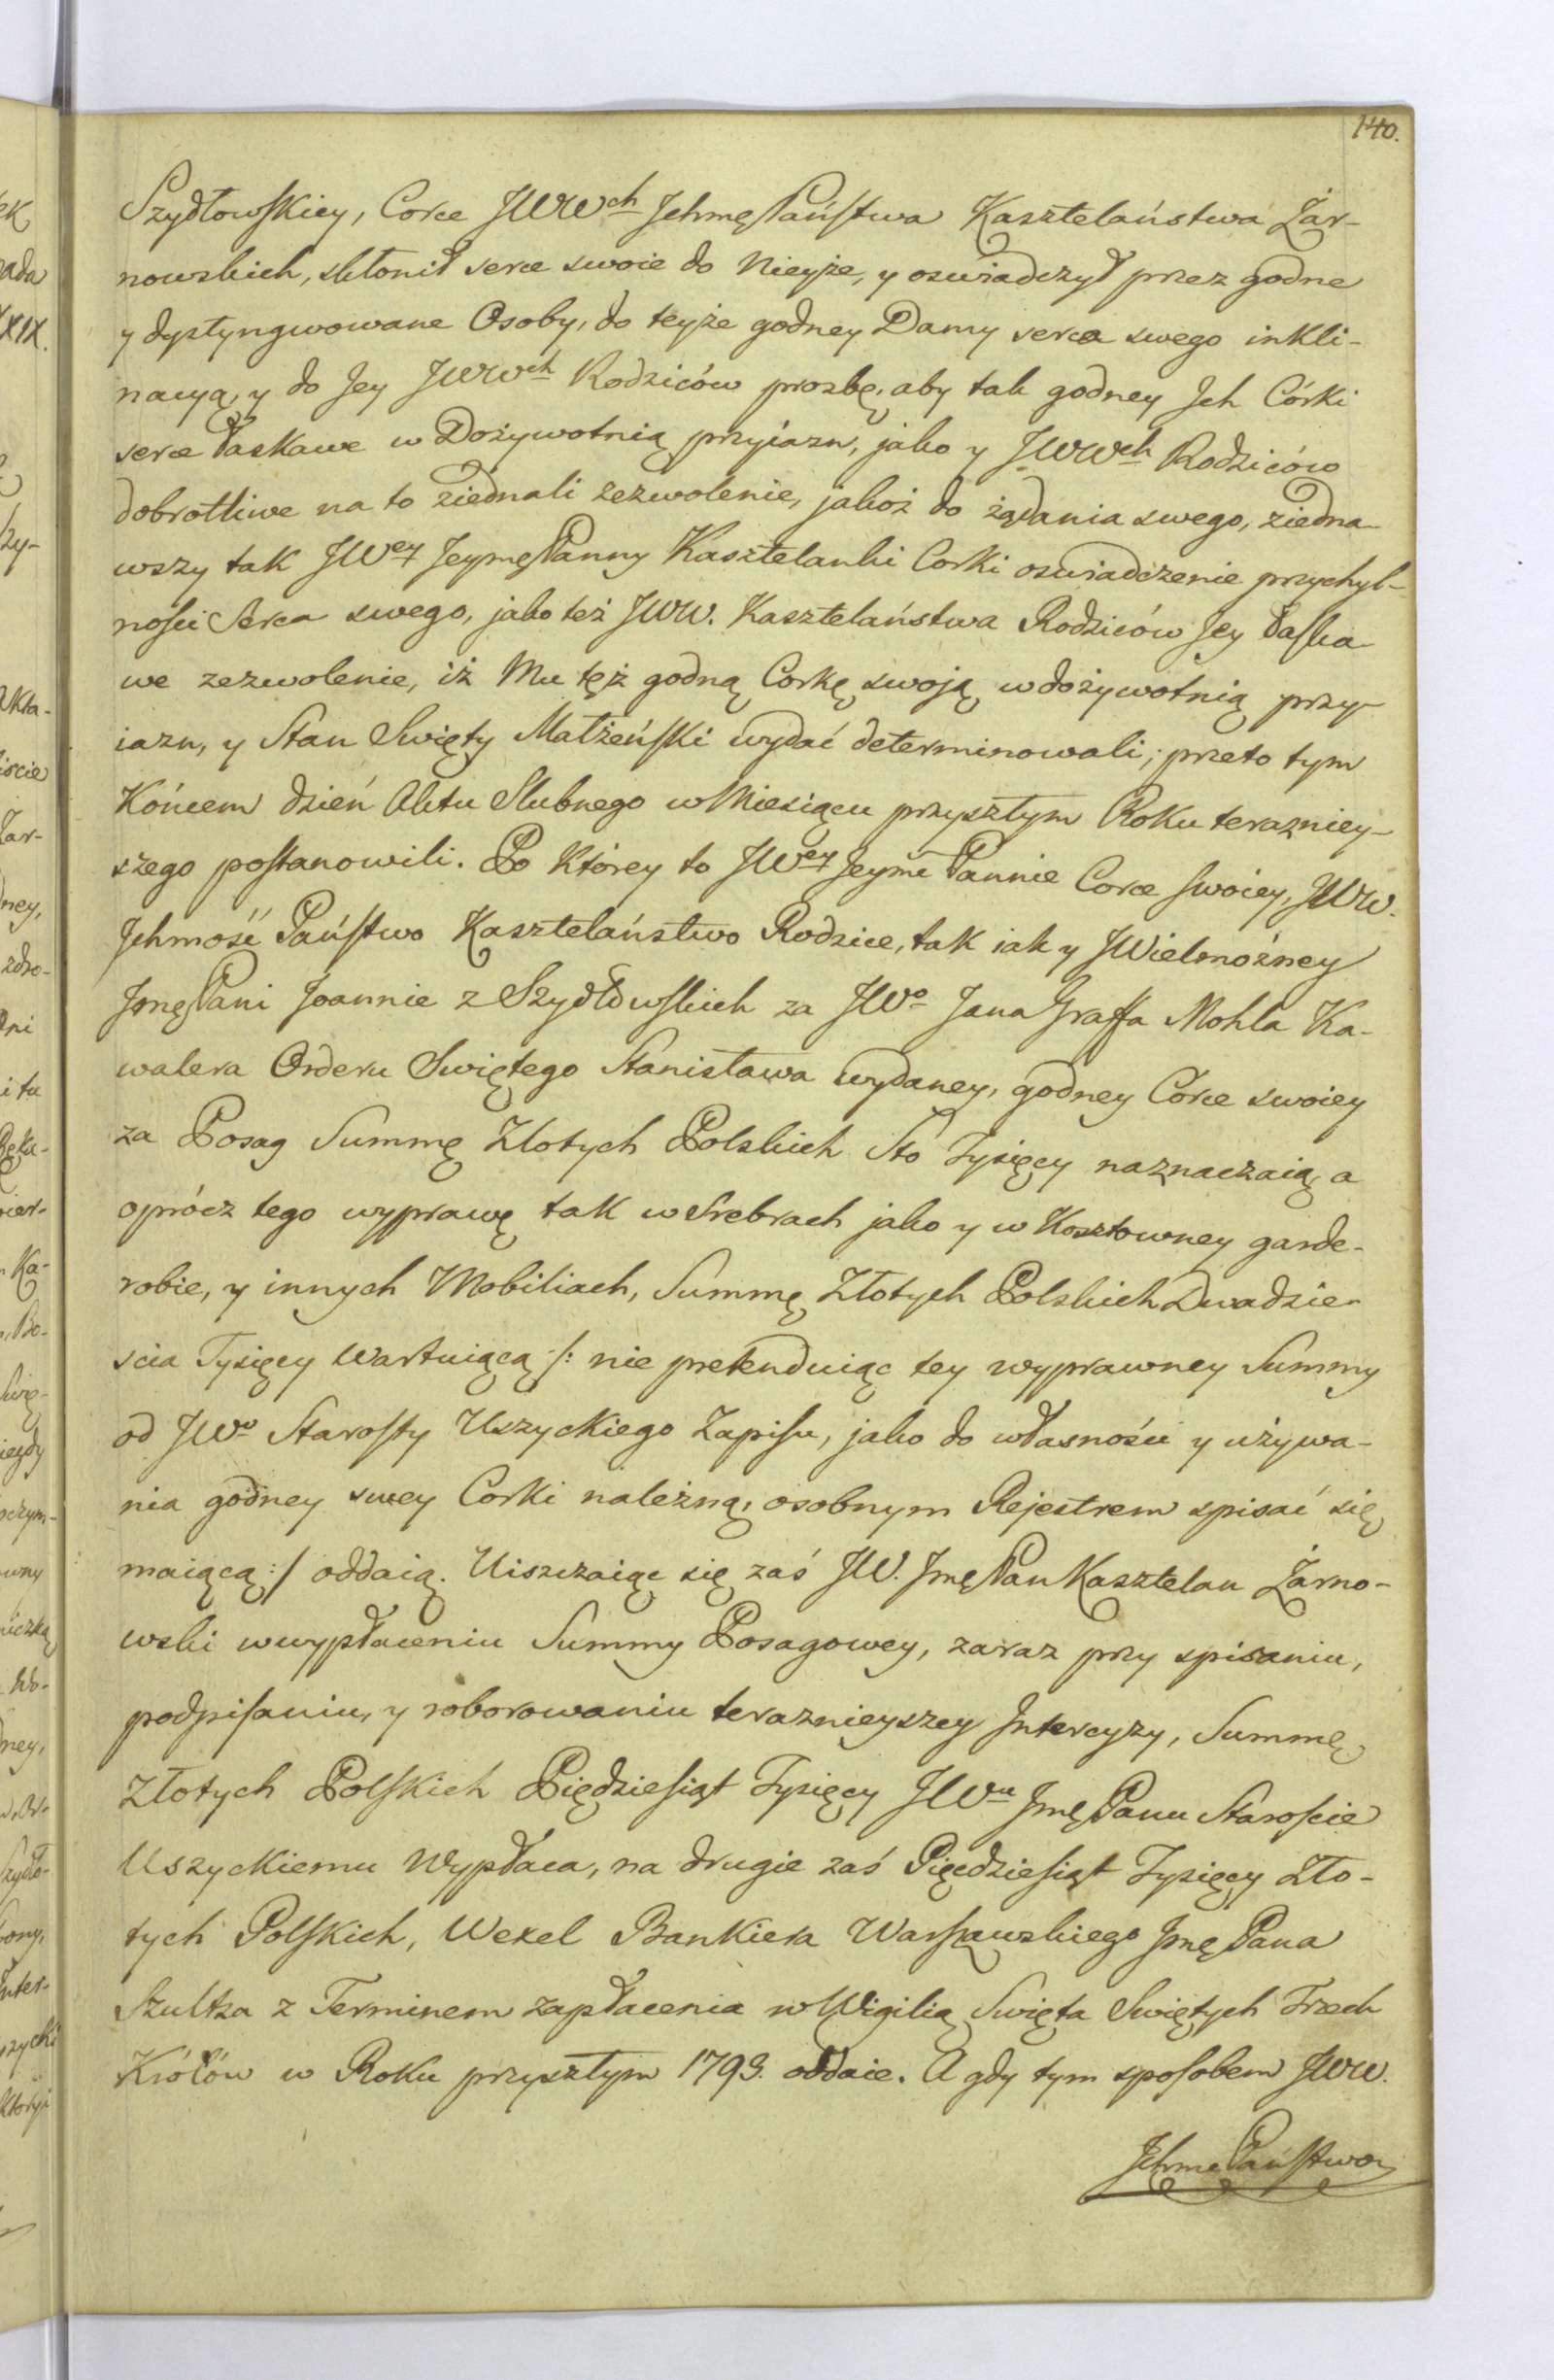 140.
Szydłowskiey, Corce JWWch Jchmę Państwa Kasztelaństwa Żar-
nowskich, skłonił serce swoie do Nieyże, y oswiadczył przez godne
y dystyngwowane Osoby, do teyże godney Damy serca swego inkli-
nacyą, y do Jey JWWch Rodziców prozbę, aby tak godney Jch Córki
serce łaskawe w Dożywotnią przyiazn, jako y JWWch Rodziców
dobrotliwe na to ziednali zezwolenie, jakoż do żądania swego, ziedna-
wszy tak JWey Jeymę Panny Kasztelanki Corki oswiadczenie przychyl-
nosci Serca swego, jako też JWW. Kasztelaństwa Rodziców Jey łaska-
we zezwolenie, iż Mu tęż godną Corkę swoją w dożywotnią przy-
iazn, y Stan Swięty Małżeński wydać determinowali; przeto tym
Końcem dzień Aktu Slubnego w Miesiącu przyszłym Roku terazniey-
szego postanowili. Po Którey to JWey Jeymę Pannie Corce swoiey, JWW.
Jchmość Państwo Kasztelaństwo Rodzice, tak iak y JWielmożney
Jmę Pani Joannie z Szydłowskich za JWo Jana Graffa Mohla Ka-
walera Orderu Swiętego Stanisława wydaney, godney Córce swoiey
za Posag Summę Złotych Polskich Sto Tysięcy naznaczaią, a
oprócz tego wyprawę tak w Srebrach jako y w Kosztowney garde-
robie, y innych Mobiliach, Summę Złotych Polskich Dwadzie-
scia Tysięcy Wartuiącą /: nie pretenduiąc tey wyprawney Summy
od JWo Starosty Uszyckiego Zapisu, jako do własności y używa-
nia godney swey Corki należną, osobnym Rejestrem spisać się
maiącą :/ oddaią. Uiszczaiąc się zaś JW. Jmę Pan Kasztelan Żarno-
wski w wypłaceniu Summy Posagowey, zaraz przy spisaniu,
podpisaniu, y roborowaniu teraznieyszey Jntercyzy, Summę
Złotych Polskich Pięćdziesiąt Tysięcy JWu Jmę Panu Staroscie
Uszyckiemu Wypłaca, na drugie zaś Pięćdziesiąt Tysięcy Zło-
tych Polskich, Wexel Bankiera Warszawskiego Jmę Pana
Szultza z Terminem zapłacenia w Wigilią Swięta Swiętych Trzech
Królów w Roku przyszłym 1793. oddaie. A gdy tym sposobem JWW.
Jchmę Państwo